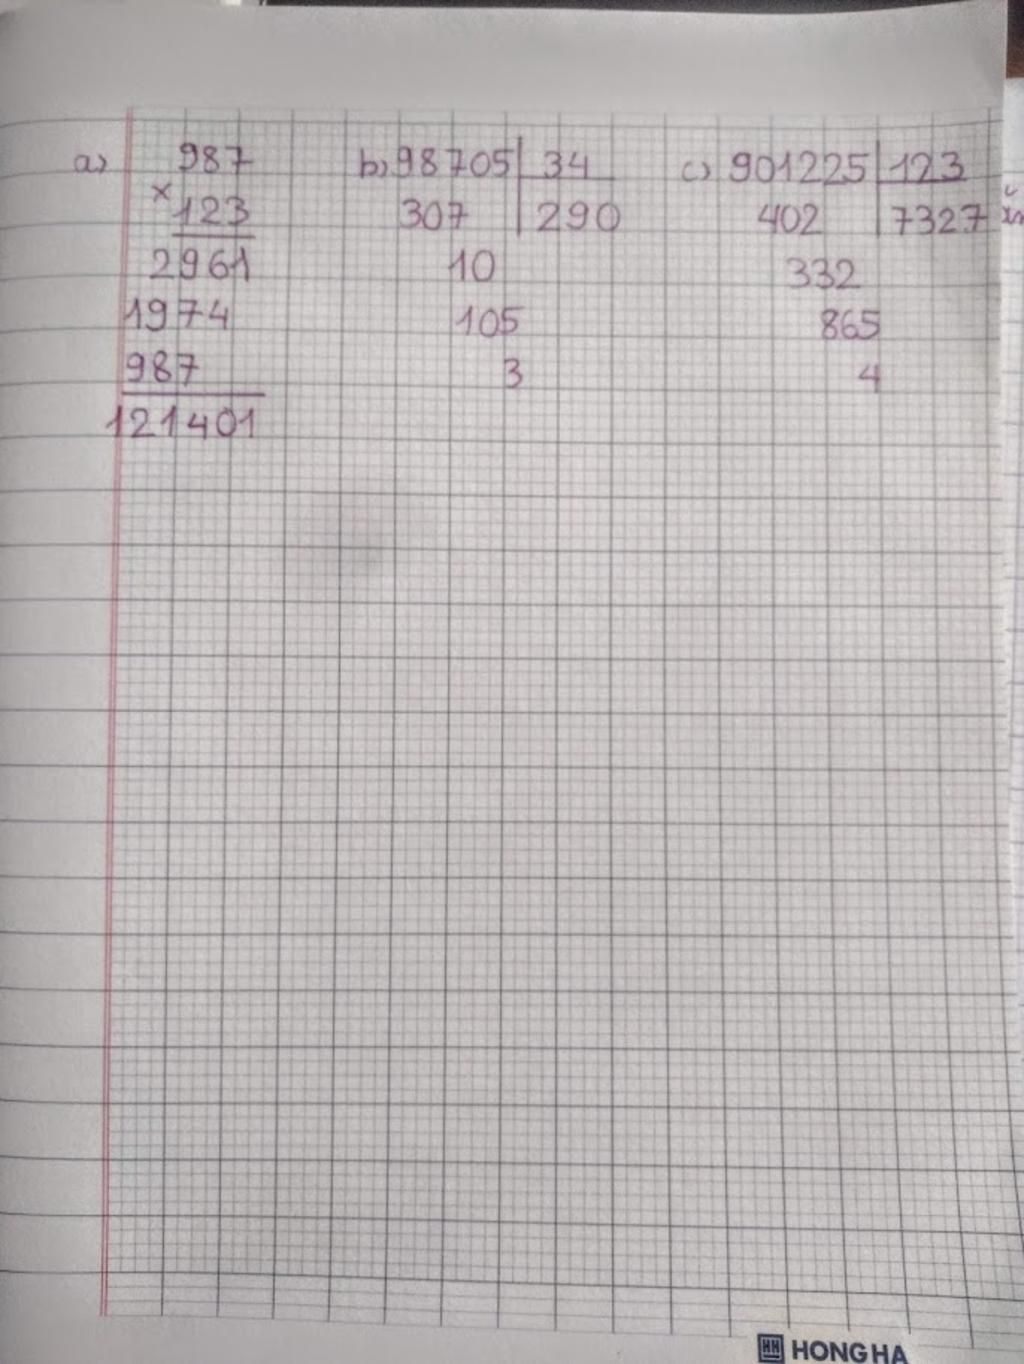 a) 987
× 123
2961
1974
987
121401
b) 98705 34
307 290
10
105
3
c) 901225 123
402 7327
332
865
4
HH HONG HA